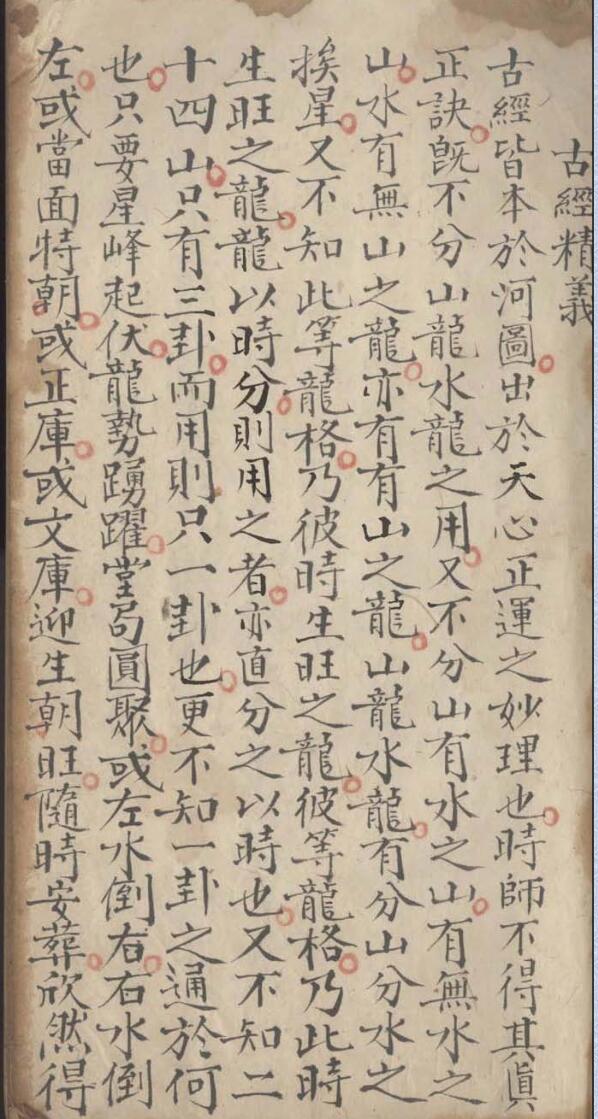 古經精義
古經皆本於河圖出於天心正運之妙理也時師不得其眞
正訣旣不分山龍水龍之用又不分山有水之山有無水之
山水有無山之龍亦有有山之龍山龍水龍有分山分水之
挨星又不知此等龍格乃彼時生旺之龍彼等龍格乃此時
生旺之龍龍以時分則用之者亦直分之以時也又不知二
十四山只有三卦而用則只一卦也更不知一卦之通於何
也只要星峰起伏龍勢踴躍堂局圓聚或左水倒右右水倒
左或當面特朝或正庫或文庫迎生朝旺隨時安葬欣然得